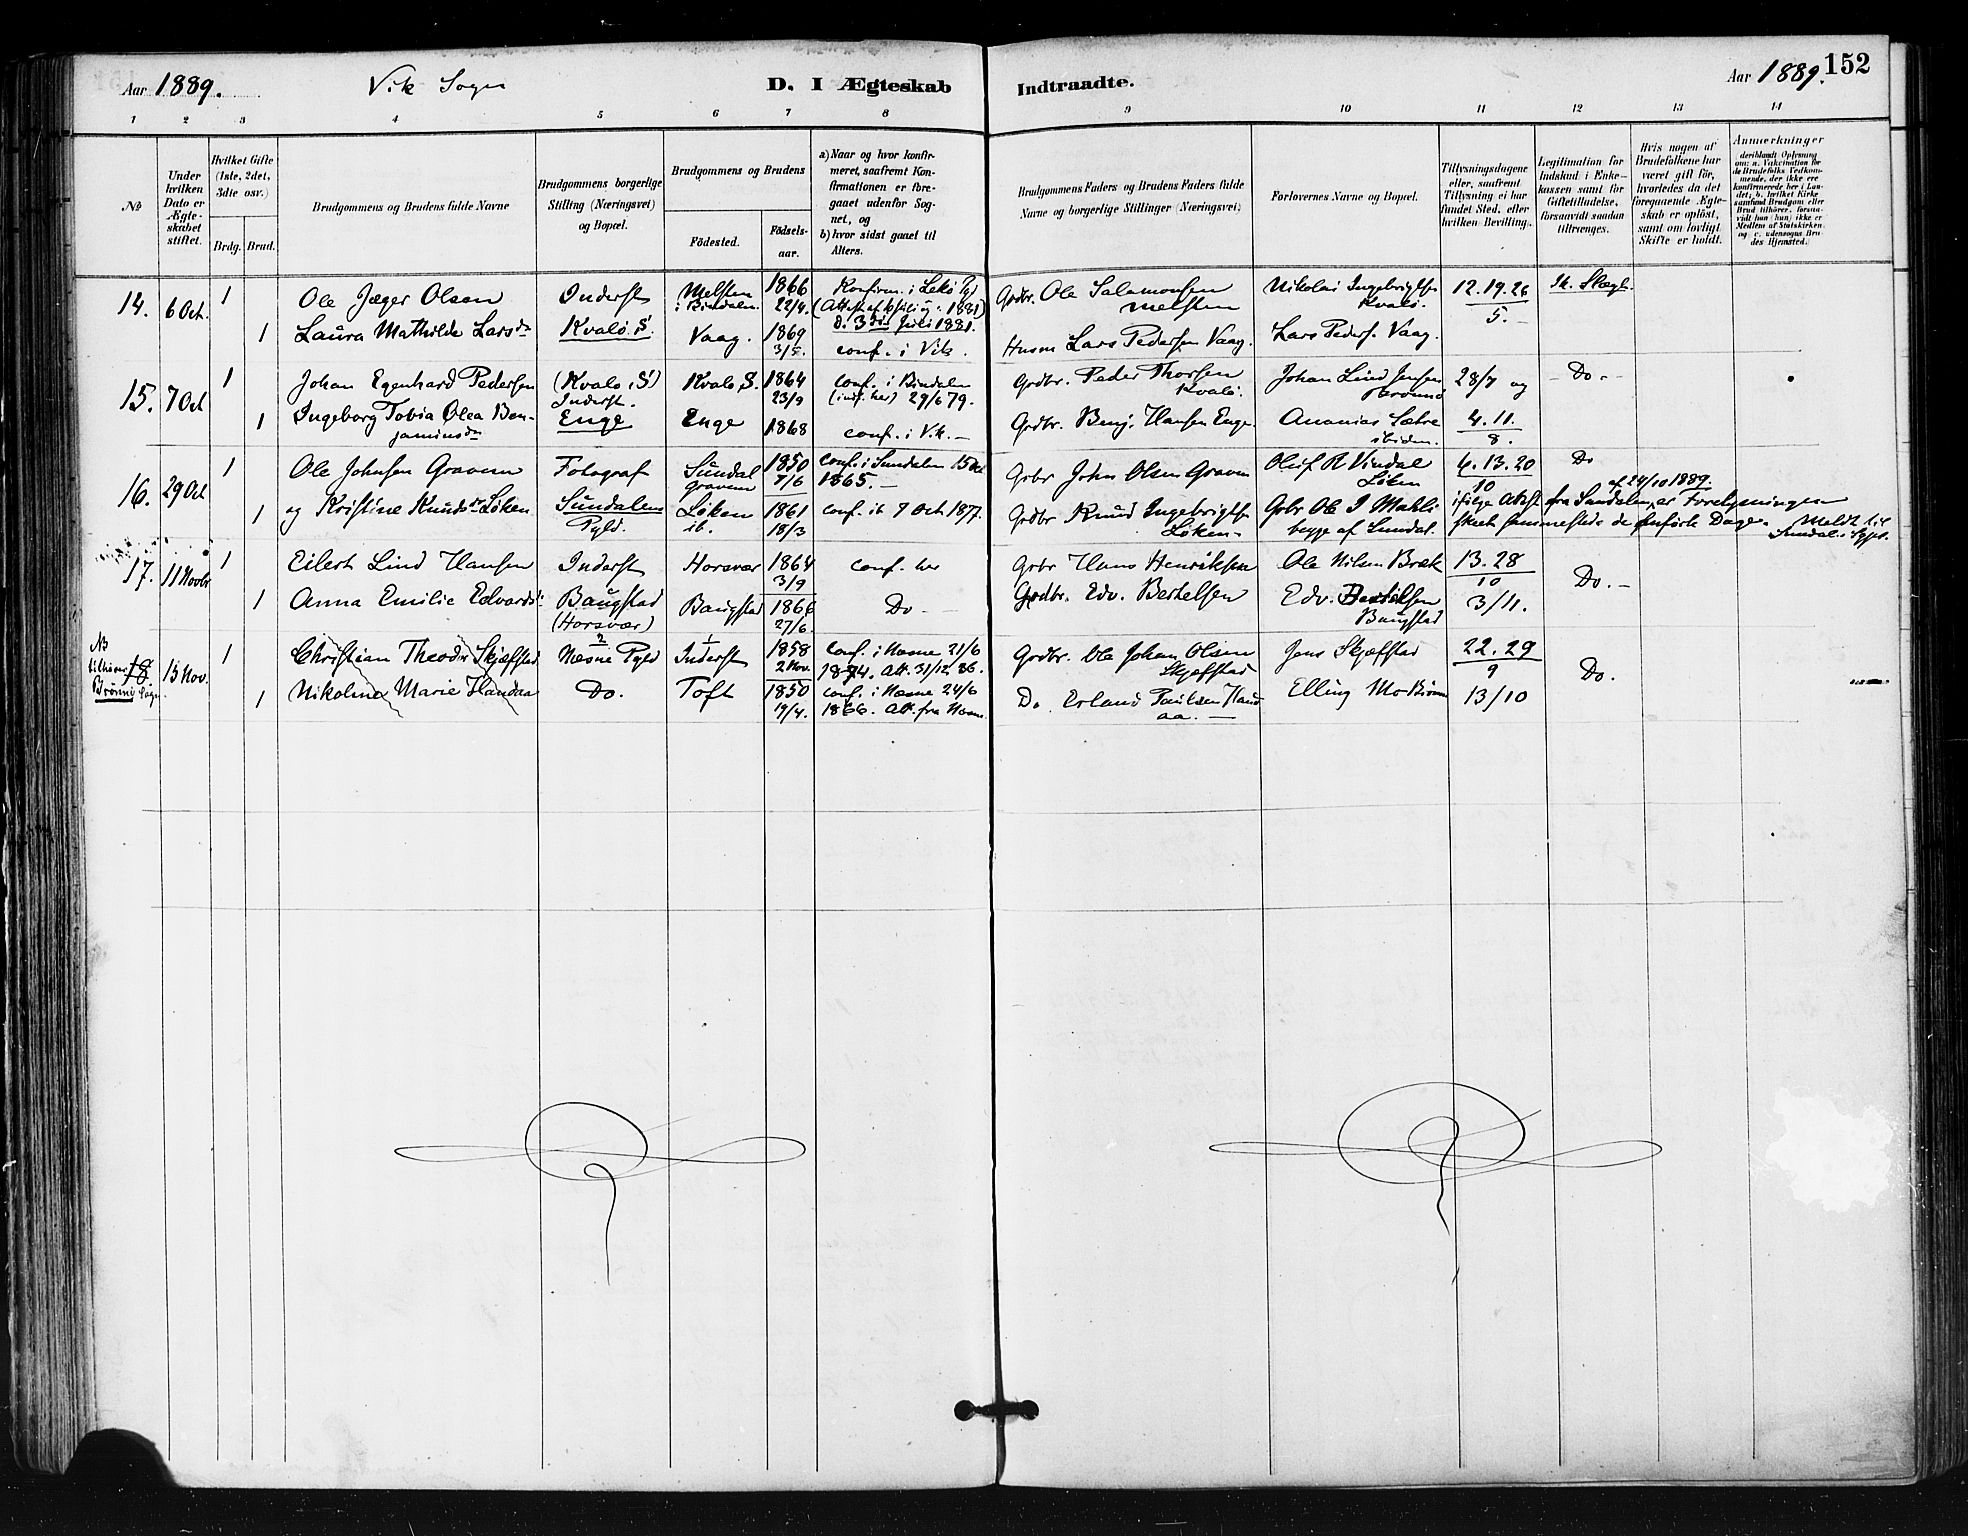 Aar 1889. Vik Sogn D. I Ægteskab Indtraadte. Aar 1889. 152
1 2 3 4 5 6 7 8 9 10 11 12 13 14
№
Under hvilken Dato er Ægteskabet stiftet.
Hvilket Gifte (1ste, 2det, 3die osv.)
Brdg. Brud.
Brudgommens og Brudens fulde Navne
Brudgommens borgerlige Stilling (Næringsvei) og Bopæl.
Brudgommens og Brudens
Födested.
Födselsaar.
a) Naar og hvor konfirmeret, saafremt Konfirmationen er foregaaet udenfor Sognet, og
b) hvor sidst gaaet til Alters.
Brudgommens Faders og Brudens Faders fulde Navne og borgerlige Stillinger (Næringsvei)
Forlovernes Navne og Bopæl.
Tillysningsdagene eller, saafremt Tillysning ei har fundet Sted, efter hvilken Bevilling.
Legitimation for Indskud i Enkekassen samt for Giftetilladelse, forsaavidt saadan tiltrænges.
Hvis nogen af Brudefolkene har været gift för, hvorledes da det foregaaende Ægteskab er oplöst, samt om lovligt Skifte er holdt.
Anmerkninger
deriblandt Oplysning om: a. Vakcination for de Brudefolks Vedkommende, der ikke ere konfirmerede her i Landet; b. hvilket Kirkesamfund Brudgom eller Brud tilhörer, forsaavidt han (hun) ikke er Medlem af Statskirken, og c. udensogns Brudes Hjemsted.
14. 6 Oct. 1 Ole Jæger Olsen Inderst Melsten i Bindalen 1866 22/4 Konfirm. i Lekø Pgd (Attest af 1881) d. 3die Juli 1881. Grdbr. Ole Salamonsen Melsten Nikolai Ingebrigtsen Kvalø. 12. 19. 26 5. Sk. Skogl.
1 Laura Mathilde Larsdr Kvalø S. Vaag. 1869 3/5. conf. i Vik. Husm Lars Pedersen Vaag. Lars Peders. Vaag.
15. 7 Oct 1 Johan Egenhard Pedersen (Kvalø, S.) Inderst. Kvalø, S. 1864 23/9 conf. i Bindalen (indf. her) 29/6 79. Grdbr. Peder Thorsen Kvalø. Johan Lind Jensen 28/7 og Do.
1 Ingeborg Tobia Olea Benjaminsdr Enge Enge 1868 conf. i Vik. Grdbr. Benj. Hansen Enge Ananias Sætre ibidem. 4. 11. 8.
16. 29 Oct 1 Ole Johnsen Gravem Fotograf Sundal Gravem 1850 7/6 conf. i Sundalen 15 Oct 1865. Grbr John Olsen Gravem Oluf R Vindal Løken 6. 13. 20 10 Do
1 og Kristine Knudsdr Løken Sundalens Pgld. Løken ib. 1861 18/3 conf. ib 7 Oct 1877. Grdbr Knud Ingebrigtsen Løken Grbr Ole I Mahli begge af Sundal. ifølge Attest fra Sundalen, af 24/10 1889. er Forelysningen skeet sammesteds de anførte Dage. Meldt til Sundal. i
17. 11 Novbr 1 Eilert Lind Hansen Inderst Horsvær 1864 3/9 conf. her Grbr Hans Henriksen Ole Nilsen Bræk 13. 28 10 Do.
1 Anna Emilie Edvardsd Baugstad (Horsvær) Baugstad 1866 27/6. Do Grdbr. Edv. Bertelsen Edv. Bertelsen Baugstad 3/11.
NB tilhører Brønnø Sogn 18. 15 Nov. 1 Christian Theodor Skjæfstad Næsne Pgld Inderst 1858 2 Nov. conf. i Næsne 21/6 1874. Att. 31/12 86. Grdbr. Ole Johan Olsen Skjæfstad Jens Skjæfstad 22. 29 9 Do.
1 Nikoline Marie Handaa Do. Toft 1850 19/4. conf. i Næsne 24/6 1866. Att. fra Næsne. Do. Erland Paulsen Handaa. Elling Mo Brønnø 13/10